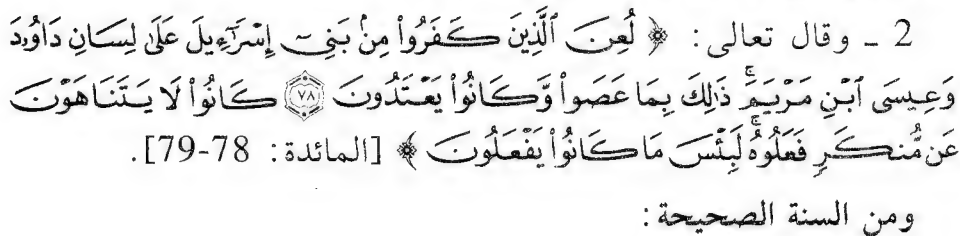 2 ـ وقال تعالى : ﴿ لُعِنَ ٱلَّذِينَ كَفَرُوا۟ مِنۢ بَنِىٓ إِسْرَٰٓءِيلَ عَلَىٰ لِسَانِ دَاوُۥدَ
وَعِيسَى ٱبْنِ مَرْيَمَ ۚ ذَٰلِكَ بِمَا عَصَوا۟ وَّكَانُوا۟ يَعْتَدُونَ ﴿٧٨﴾ كَانُوا۟ لَا يَتَنَاهَوْنَ
عَن مُّنكَرٍ فَعَلُوهُ ۚ لَبِئْسَ مَا كَانُوا۟ يَفْعَلُونَ ﴾ [المائدة : 78-79].
ومن السنة الصحيحة :